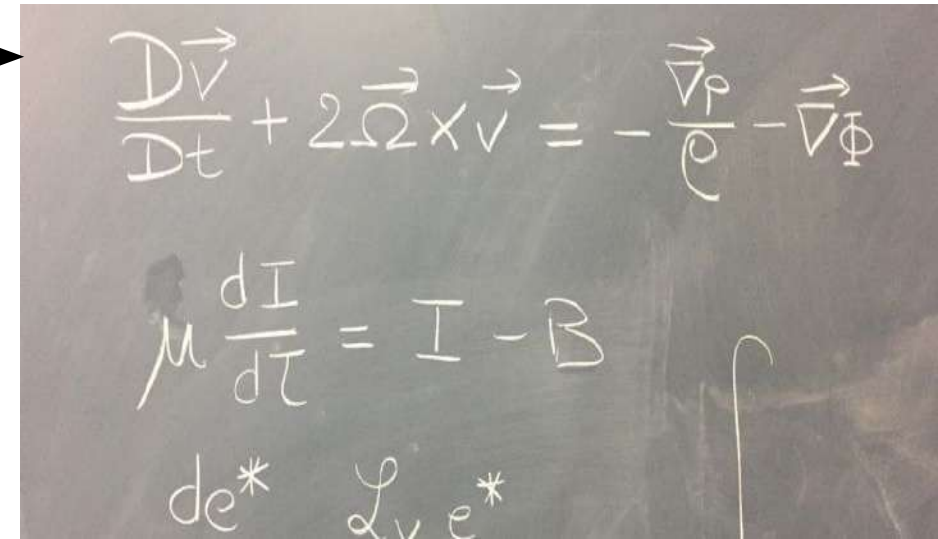 Dv⃗/Dt + 2Ω⃗ × v⃗ = - ∇⃗p/ρ - ∇⃗Φ
μ dI/dτ = I - B
de* ℒᵥe* ∫